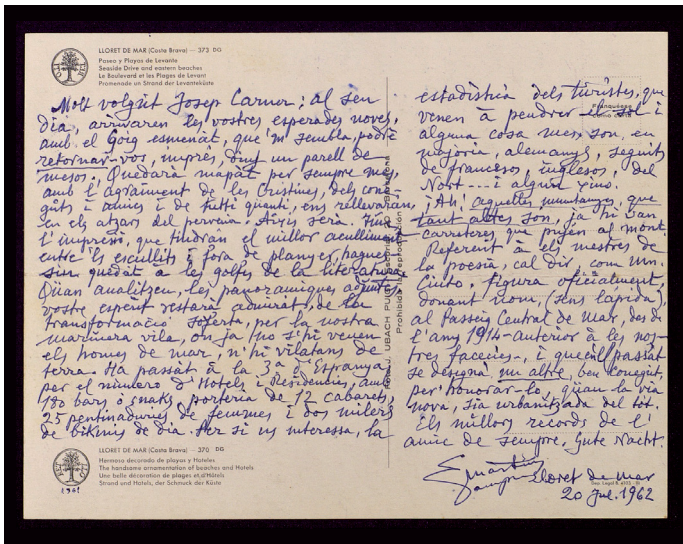 LLORET DE MAR (Costa Brava) — 373 DG
Paseo y Playas de Levante
Seaside Drive and eastern beaches
Le Boulevard et les Plages de Levant
Promenade un Strand der Levanteküste
Molt volgut Josep Carner: al seu
dia, arrivaren les vostres esperades noves,
amb el Goig esmenat, que 'm sembla, podré
retornar-vos, imprès, d'uny un parell de
mesos. Quedarà mapat per sempre mes,
amb l'agraiment de les Cristines, dels con-
guts i amics i de tutti quanti, ens rellevaran
en els atzars del pervenir. Aixis serà.
l'impremta, que tindrán el millor aculliment
entre 'ls escullits i fora de planyer, hagues-
sin quedat à les golfes de la literatura.
Quan analitzeu, les panoramiques adjuntes,
vostre esperit restarà admirat, de la
transformació soferta, per la nostra
marinera vila, on ja no s'hi veuen
els homes de mar, n'hi vilatans de
terra. Ha passat à la 3ª d'Espanya
per el número d'Hotels i Residencies, amb
180 bars ó snaks, porteria de 12 cabarets,
25 pentinaduries de femmes i dos milers
de bikinis de dia. Per si us interessa, la
LLORET DE MAR (Costa Brava) — 370 DG
Hermoso decorado de playas y Hoteles
The handsome ornamentation of beaches and Hotels
Une belle décoration de plages et d'Hôtels
Strand und Hotels, der Schmuck der Küste
1961
J. UBACH PUIG
Prohibida la reproducción
estadistria dels turistes, que
venen à pendrer el sol i
alguna cosa mes, son, en
majoria, alemanys, seguits
de francesos, inglesos, del
Nort --- i algun xino.
¡Ah! aquelles muntanyes, que
tant altes son, ja hi van
carreteres que pujen al mont.
Referent à els mestres de
la poesia, cal dir, com Mn.
Cinto, figura oficialment,
donant nom, (sens lapida),
al Passeig Central de Mar, des de
l'any 1914 - anterior à les nos-
tres facecies -, i que l'any passat
se designà un altre, ben conegut,
per' honorar-lo, quan la via
nova, sia urbanitzada del tot.
Els millors records de l'
amic de sempre. Gute Nacht.
Lloret de mar
20 Jul. 1962